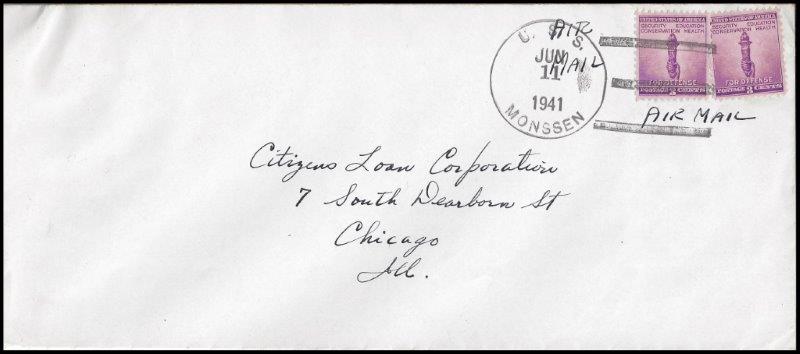 U. S. S.
JUN
11
1941
MONSSEN
AIR
MAIL
UNITED STATES OF AMERICA
SECURITY EDUCATION
CONSERVATION HEALTH
FOR DEFENSE
POSTAGE 3 CENTS
UNITED STATES OF AMERICA
SECURITY EDUCATION
CONSERVATION HEALTH
FOR DEFENSE
POSTAGE 3 CENTS
AIR MAIL
Citizens Loan Corporation
7 South Dearborn St
Chicago
Ill.